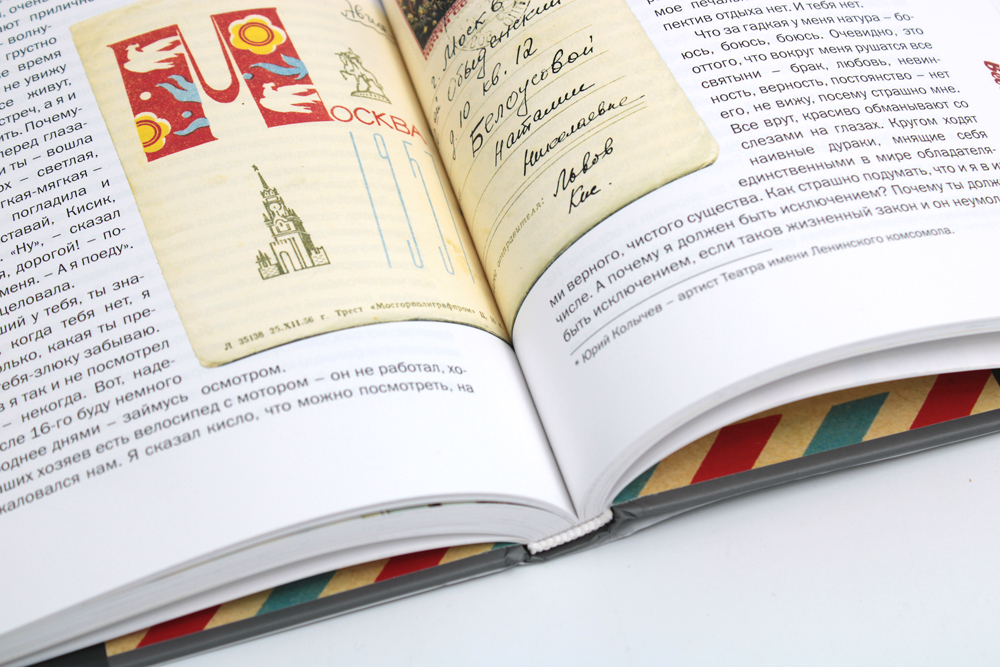 очень
прилично
волну-
грустно
время
не увижу
все живут,
встреч, а я и
Почему-
перед глаза-
и ты – вошла
– светлая,
мягкая-мягкая –
погладила и
Вставай, Кисик,
«Ну», – сказал
дорогой! – по-
меня. – А я поеду».
целовала.
у тебя, ты зна-
когда тебя нет, я
только, какая ты пре-
тебя-злюку забываю.
я так и не посмотрел
– некогда. Вот, наде-
после 16-го буду немного
днями – займусь осмотром.
наших хозяев есть велосипед с мотором – он не работал, хо-
жаловался нам. Я сказал кисло, что можно посмотреть, на
МОСКВА
195
Л 35138 25.XII.56 г. Трест «Мосгорполиграфпром»
г. Москва
д. 10 кв. 12
Белоусовой
Наталии
Николаевне
отправителя: Львов
Кис.
мое
пектив отдыха нет. И тебя нет.
Что за гадкая у меня натура – бо-
юсь, боюсь, боюсь. Очевидно, это
оттого, что вокруг меня рушатся все
святыни – брак, любовь, невин-
ность, верность, постоянство – нет
его, не вижу, посему страшно мне.
Все врут, красиво обманывают со
слезами на глазах. Кругом ходят
наивные дураки, мнящие себя
единственными в мире обладателя-
ми верного, чистого существа. Как страшно подумать, что и я в их
числе. А почему я должен быть исключением? Почему ты должна
быть исключением, если таков жизненный закон и он неумолим
* Юрий Колычев – артист Театра имени Ленинского комсомола.